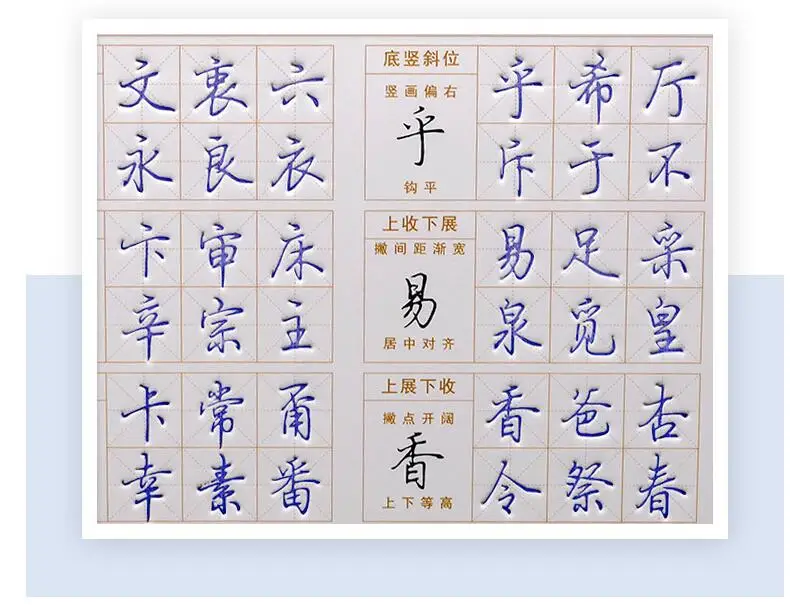 文衷六
永良衣
底竖斜位
竖画偏右
乎
钩平
乎希厅
斥于不
卞审床
辛宗主
上收下展
撇间距渐宽
易
居中对齐
易足采
泉觅皇
卡常甬
幸素番
上展下收
撇点开阔
香
上下等高
香爸杏
令祭春